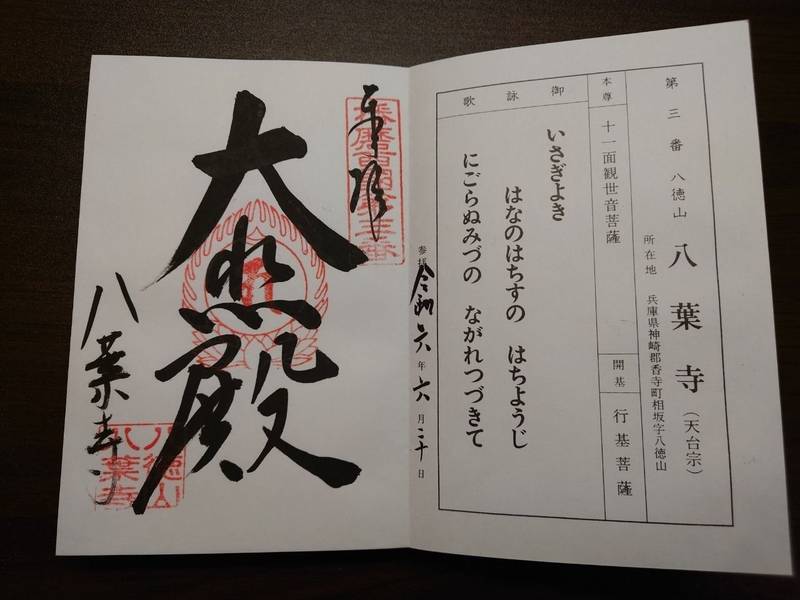 第三番 八徳山 八葉寺 (天台宗)
所在地 兵庫県神崎郡香寺町相坂字八徳山
本尊 十一面観世音菩薩
開基 行基菩薩
御詠歌
いさぎよき
はなのはちすの はちようじ
にごらぬみづの ながれつづきて
奉拝
播磨西国第三番
参拝 令和六年六月二十日
大悲殿
八葉寺
八徳山
八葉寺